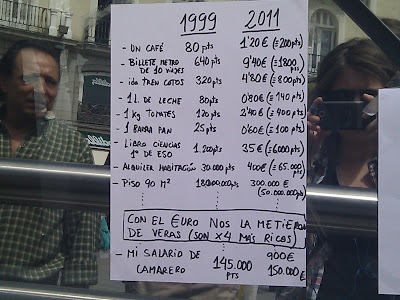 1999 2011
- UN CAFÉ 80 pts 1'20€ (=200pts)
- BILLETE METRO DE 10 VIAJES 640 pts 9'40€ (=1800 pts)
- ida TREN COTOS 320 pts 4'80€ (=800 pts)
- 1 L. DE LECHE 80 pts 0'80€ (=140 pts)
- 1 kg TOMATES 120 pts 2'40€ (=400 pts)
- 1 BARRA PAN 25 pts 0'60€ (=100 pts)
- LIBRO CIENCIAS 1º DE ESO 1.200 pts 35€ (=6000 pts)
- ALQUILER HABITACIÓN 30.000 pts 400€ (=65.000 pts)
- PISO 90 M² 300.000 € (50.000.000 pts)
CON EL €URO NOS LA METIERON
DE VERAS (SON x4 MÁS RICOS)
- MI SALARIO DE CAMARERO 145.000 PTS 900€ 150.000